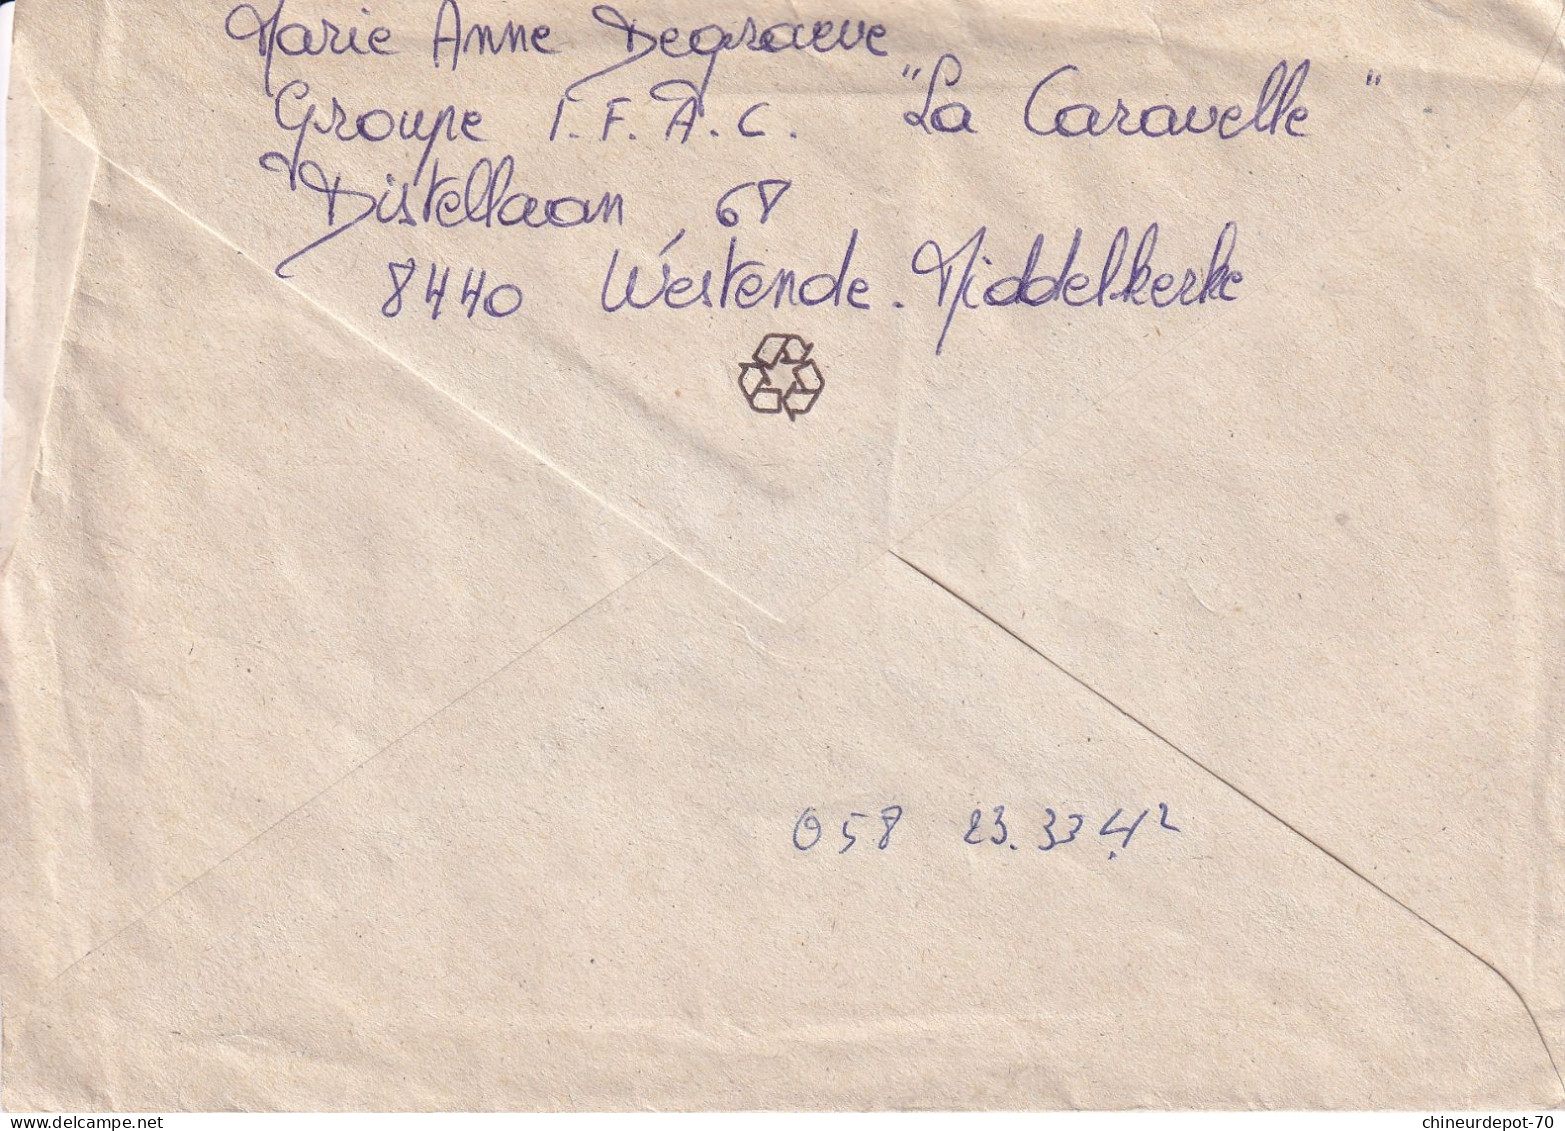 Marie Anne Degraeve
Groupe I.F.A.C. "La Caravelle"
Distellaan 68
8440 Westende-Middelkerke
058 23.33 42
chineurdepot-70
www.delcampe.net